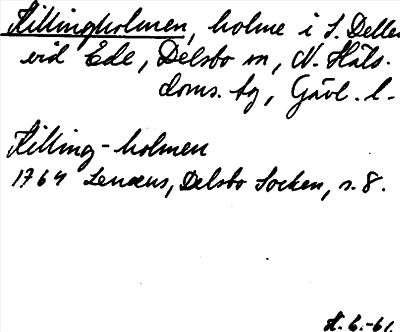 Killingholmen, holme i S. Dellen
vid Ede, Delsbo sn, N. Häls.
doms. tg, Gävl. l.
Killing-holmen
1764 Lenæus, Delsbo Socken, s. 8.
H. G. -61.